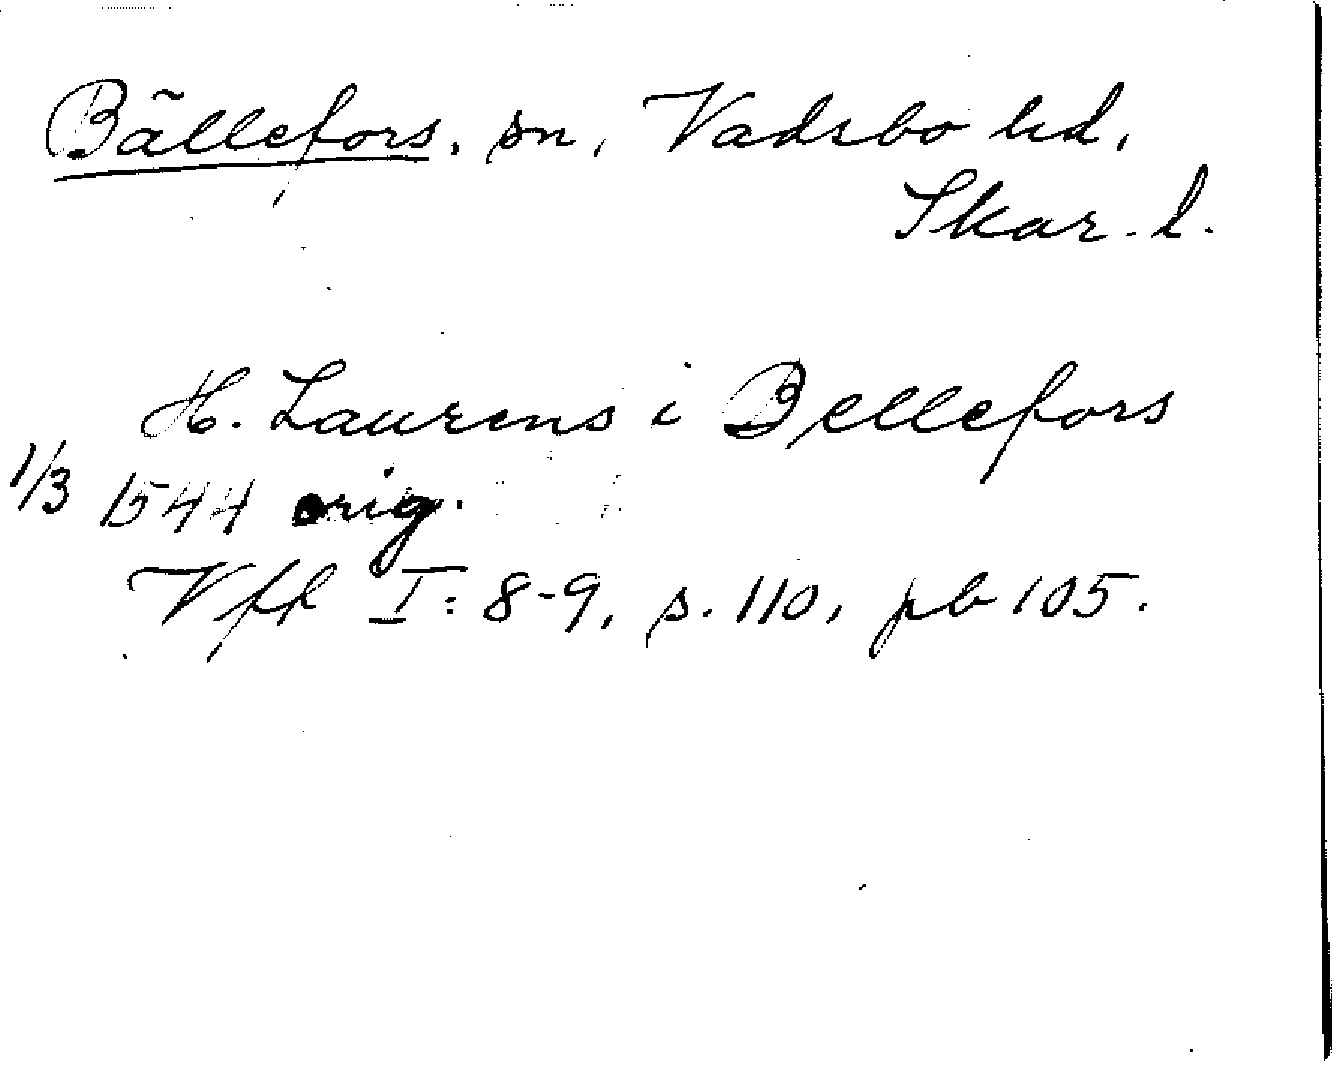 Bällefors, sn, Vadsbo hd,
Skar. l.
H. Laurens i Bellefors
1/3 1544 orig.
Vff I: 8-9, s. 110, pb 105.